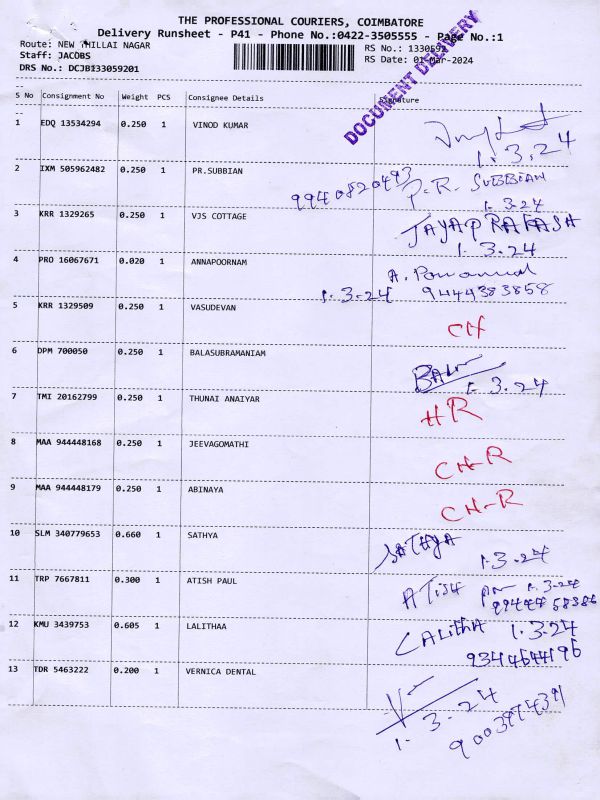 THE PROFESSIONAL COURIERS, COIMBATORE
Delivery Runsheet - P41 - Phone No.:0422-3505555 - Page No.:1
Route: NEW THILLAI NAGAR
RS No.: 1330592
Staff: JACOBS
RS Date: 01-Mar-2024
DRS No.: DCJB133059201
DOCUMENT DELIVERY
S No Consignment No Weight PCS Consignee Details Signature
1 EDQ 13534294 0.250 1 VINOD KUMAR
1.3.24
2 IXM 505962482 0.250 1 PR.SUBBIAN
9940820493 P.R. SUBBIAN
1.3.24
3 KRR 1329265 0.250 1 VJS COTTAGE
JAYAPRAKASH
1.3.24
4 PRO 16067671 0.020 1 ANNAPOORNAM
A.
1.3.24 9444383858
5 KRR 1329509 0.250 1 VASUDEVAN
CH
6 DPM 700050 0.250 1 BALASUBRAMANIAM
1.3.24
7 TMI 20162799 0.250 1 THUNAI ANAIYAR
HR
8 MAA 944448168 0.250 1 JEEVAGOMATHI
CH-R
9 MAA 944448179 0.250 1 ABINAYA
CH-R
10 SLM 340779653 0.660 1 SATHYA
SATHYA 1.3.24
11 TRP 7667811 0.300 1 ATISH PAUL
ATISH 1.3.24
9944458386
12 KMU 3439753 0.605 1 LALITHAA
LALITHA 1.3.24
9344644196
13 TDR 5463222 0.200 1 VERNICA DENTAL
1.3.24
9003974391